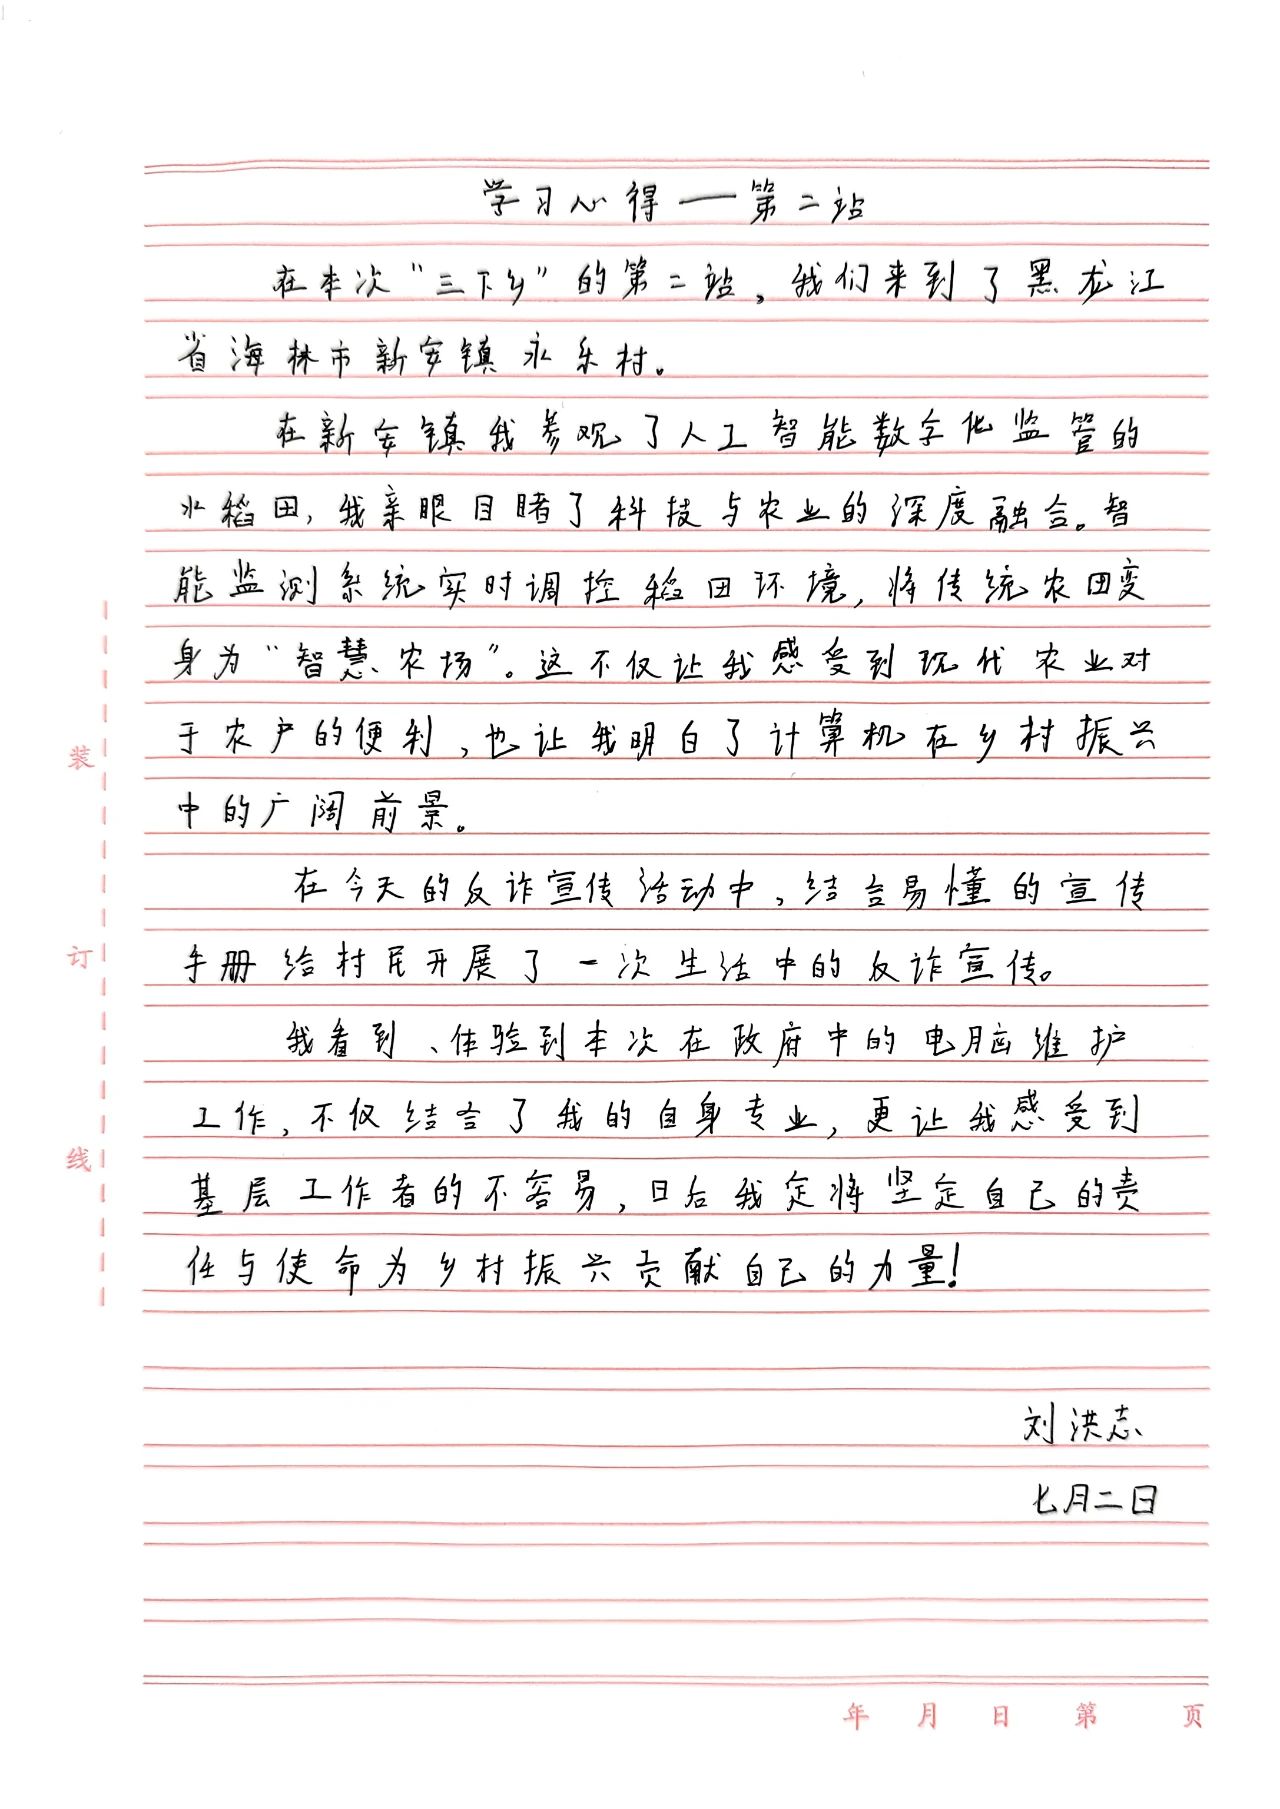 学习心得——第二站
在本次“三下乡”的第二站，我们来到了黑龙江
省海林市新安镇永乐村。
在新安镇我参观了人工智能数字化监管的
水稻田，我亲眼目睹了科技与农业的深度融合。智
能监测系统实时调控稻田环境，将传统农田变
身为“智慧农场”。这不仅让我感受到现代农业对
于农户的便利，也让我明白了计算机在乡村振兴
中的广阔前景。
在今天的反诈宣传活动中，结合易懂的宣传
手册给村民开展了一次生活中的反诈宣传。
我看到、体验到本次在政府中的电脑维护
工作，不仅结合了我的自身专业，更让我感受到
基层工作者的不容易，日后我定将坚定自己的责
任与使命为乡村振兴贡献自己的力量！
刘洪志
七月二日
装
订
线
年 月 日 第 页